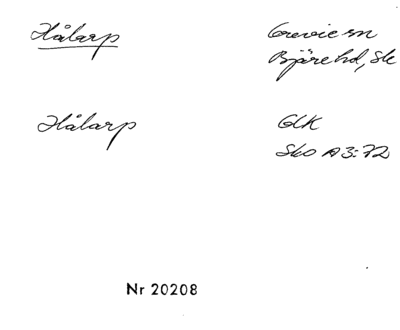 Hålarp
Grevie sn
Bjäre hd, Sk
Hålarp
GLK
Sko A3:72
Nr 20208